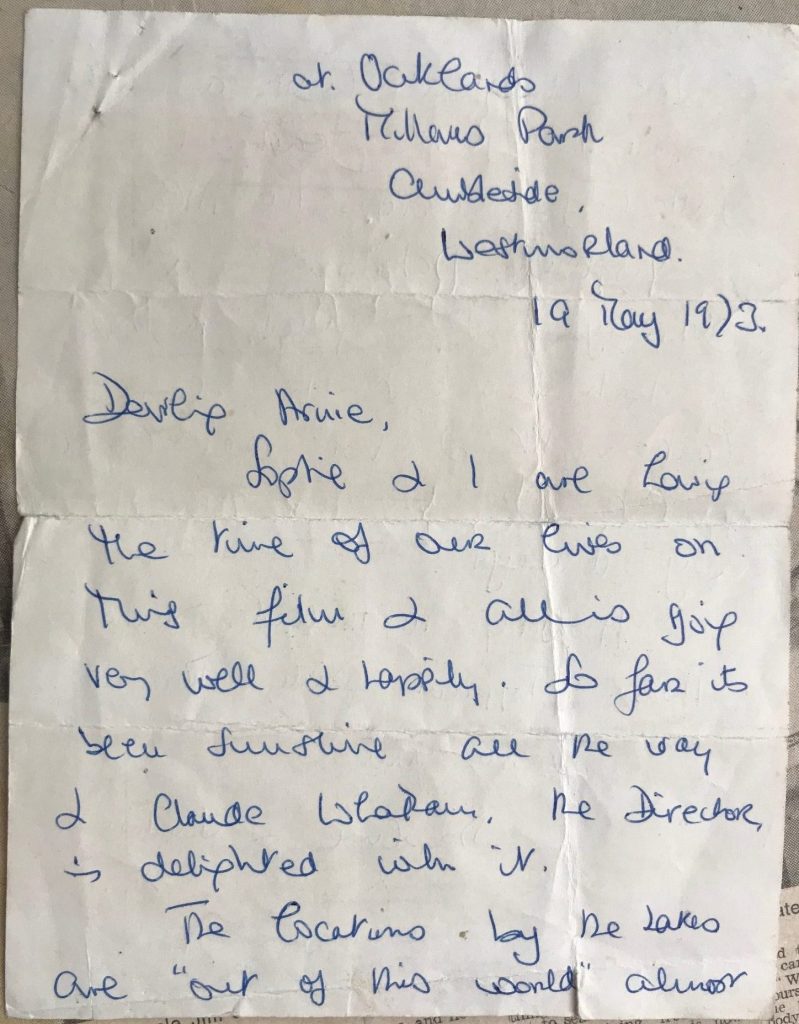 at. Oaklands
Millans Park
Ambleside,
Westmorland.
19 May 1973.
Darling
Sophie & I are having
the time of our lives on
this film & all is going
very well & happily. So far its
been sunshine all the way
& Claude Whatham, the Director,
is delighted with it.
The locations by the Lakes
are "out of this world" almost